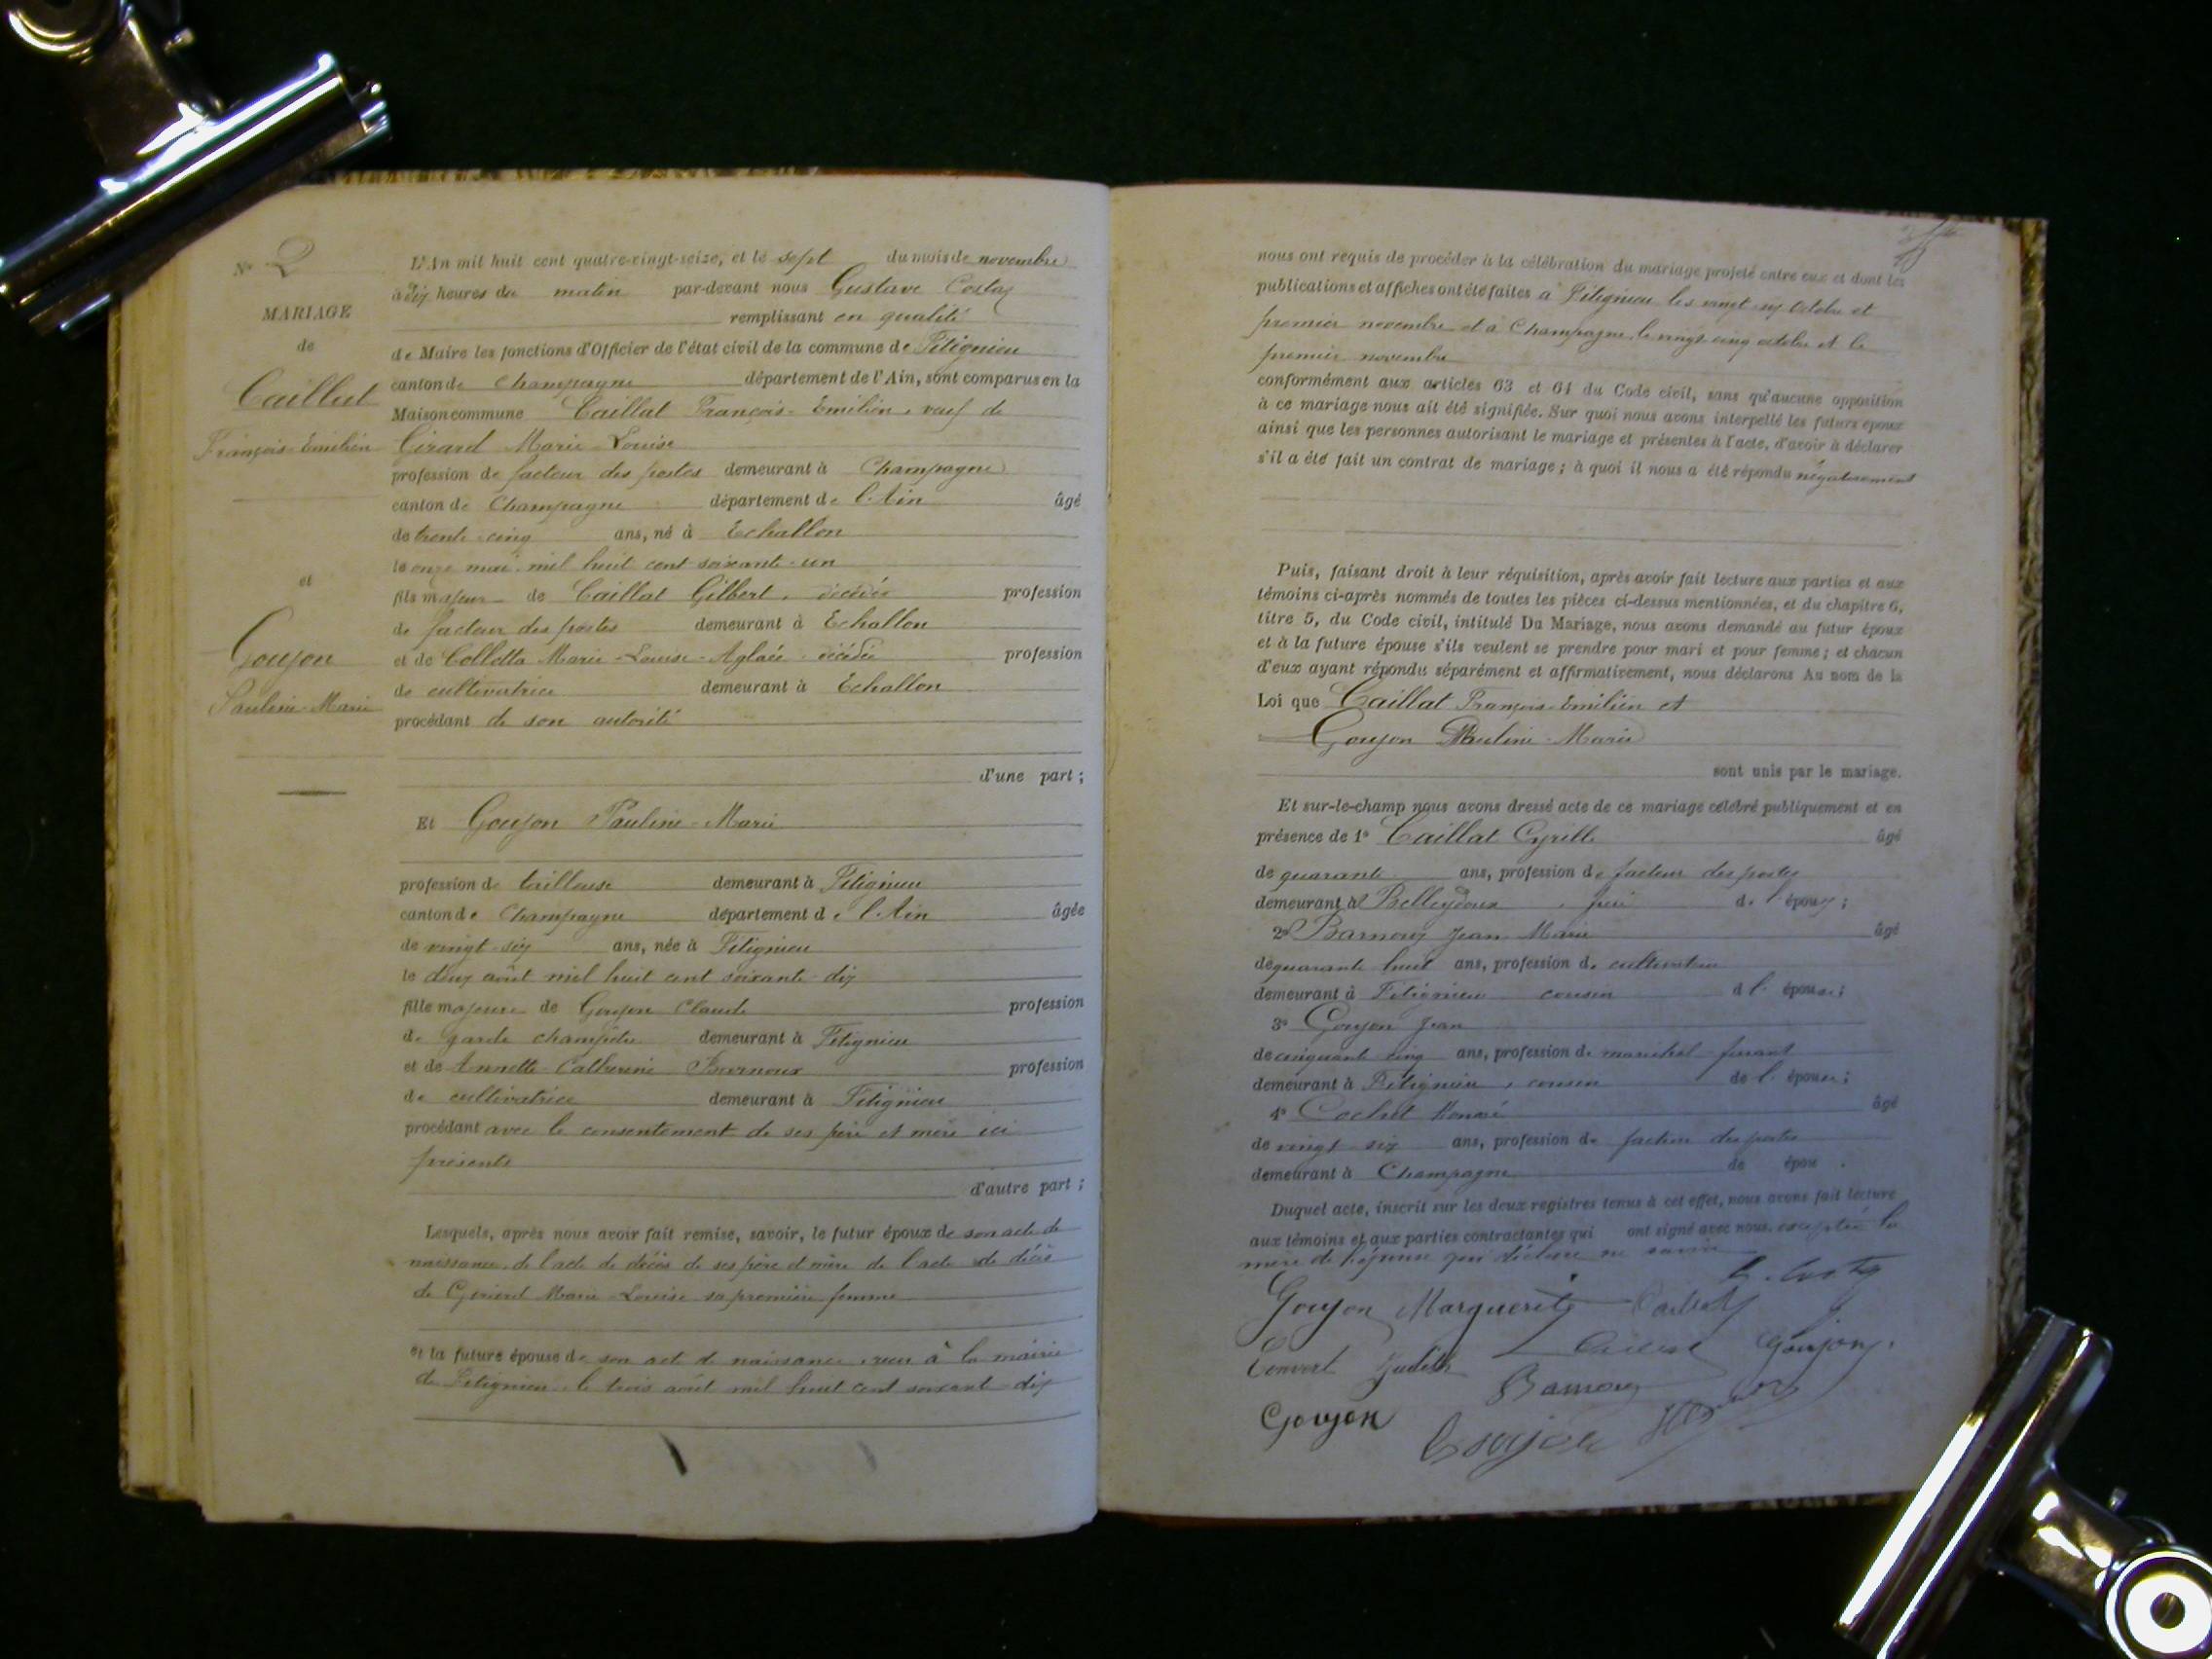 Nº 2
MARIAGE
de
Caillat
François-Emilien
et
Goujon
Pauline-Marie
L'An mil huit cent quatre-vingt-seize, et le sept du mois de novembre
à dix heures du matin par-devant nous Gustave Costaz
remplissant en qualité
de Maire les fonctions d'Officier de l'état civil de la commune de Fitignieu
canton de Champagne département de l'Ain, sont comparus en la
Maison commune Caillat François-Emilien, veuf de
Girard Marie-Louise
profession de facteur des postes demeurant à Champagne
canton de Champagne département de l'Ain âgé
de trente-cinq ans, né à Echallon
le onze mai mil huit cent soixante-un
fils majeur de Caillat Gilbert, décédé profession
de facteur des postes demeurant à Echallon
et de Colletta Marie-Louise-Aglaée décédée profession
de cultivatrice demeurant à Echallon
procédant de son autorité
d'une part ;
Et Goujon Pauline-Marie
profession de tailleuse demeurant à Fitignieu
canton de Champagne département de l'Ain âgée
de vingt-six ans, née à Fitignieu
le deux août mil huit cent soixante-dix
fille majeure de Goujon Claude profession
de garde champêtre demeurant à Fitignieu
et de Annette-Catherine Barnoux profession
de cultivatrice demeurant à Fitignieu
procédant avec le consentement de ses père et mère ici
présents
d'autre part ;
Lesquels, après nous avoir fait remise, savoir, le futur époux de son acte de
naissance, de l'acte de décès de ses père et mère de l'acte de décès
de Girard Marie-Louise sa première femme
et la future épouse de son acte de naissance, reçu à la mairie
de Fitignieu, le trois août mil huit cent soixante-dix
nous ont requis de procéder à la célébration du mariage projeté entre eux et dont les
publications et affiches ont été faites à Fitignieu les vingt-cinq octobre et
premier novembre et à Champagne le vingt-cinq octobre et le
premier novembre
conformément aux articles 63 et 64 du Code civil, sans qu'aucune opposition
à ce mariage nous ait été signifiée. Sur quoi nous avons interpellé les futurs époux
ainsi que les personnes autorisant le mariage et présentes à l'acte, d'avoir à déclarer
s'il a été fait un contrat de mariage ; à quoi il nous a été répondu négativement
Puis, faisant droit à leur réquisition, après avoir fait lecture aux parties et aux
témoins ci-après nommés de toutes les pièces ci-dessus mentionnées, et du chapitre 6,
titre 5, du Code civil, intitulé Du Mariage, nous avons demandé au futur époux
et à la future épouse s'ils veulent se prendre pour mari et pour femme ; et chacun
d'eux ayant répondu séparément et affirmativement, nous déclarons Au nom de la
Loi que Caillat François-Emilien et
Goujon Pauline-Marie
sont unis par le mariage.
Et sur-le-champ nous avons dressé acte de ce mariage célébré publiquement et en
présence de 1º Caillat Cyrille âgé
de quarante ans, profession de facteur des postes
demeurant à Belleydoux, frère de l'époux ;
2º Barnoux Jean Marie âgé
de quarante huit ans, profession de cultivateur
demeurant à Fitignieu cousin de l'épouse ;
3º Goujon Jean
de cinquante cinq ans, profession de maréchal-ferrant
demeurant à Fitignieu, cousin de l'épouse ;
4º Cochet Honoré âgé
de vingt-six ans, profession de facteur des postes
demeurant à Champagne de épou .
Duquel acte, inscrit sur les deux registres tenus à cet effet, nous avons fait lecture
aux témoins et aux parties contractantes qui ont signé avec nous exceptée la
mère de l'épouse qui déclare ne savoir
Goujon Marguerite
Convert Judith Goujon
Barnoux
Goujon Goujon